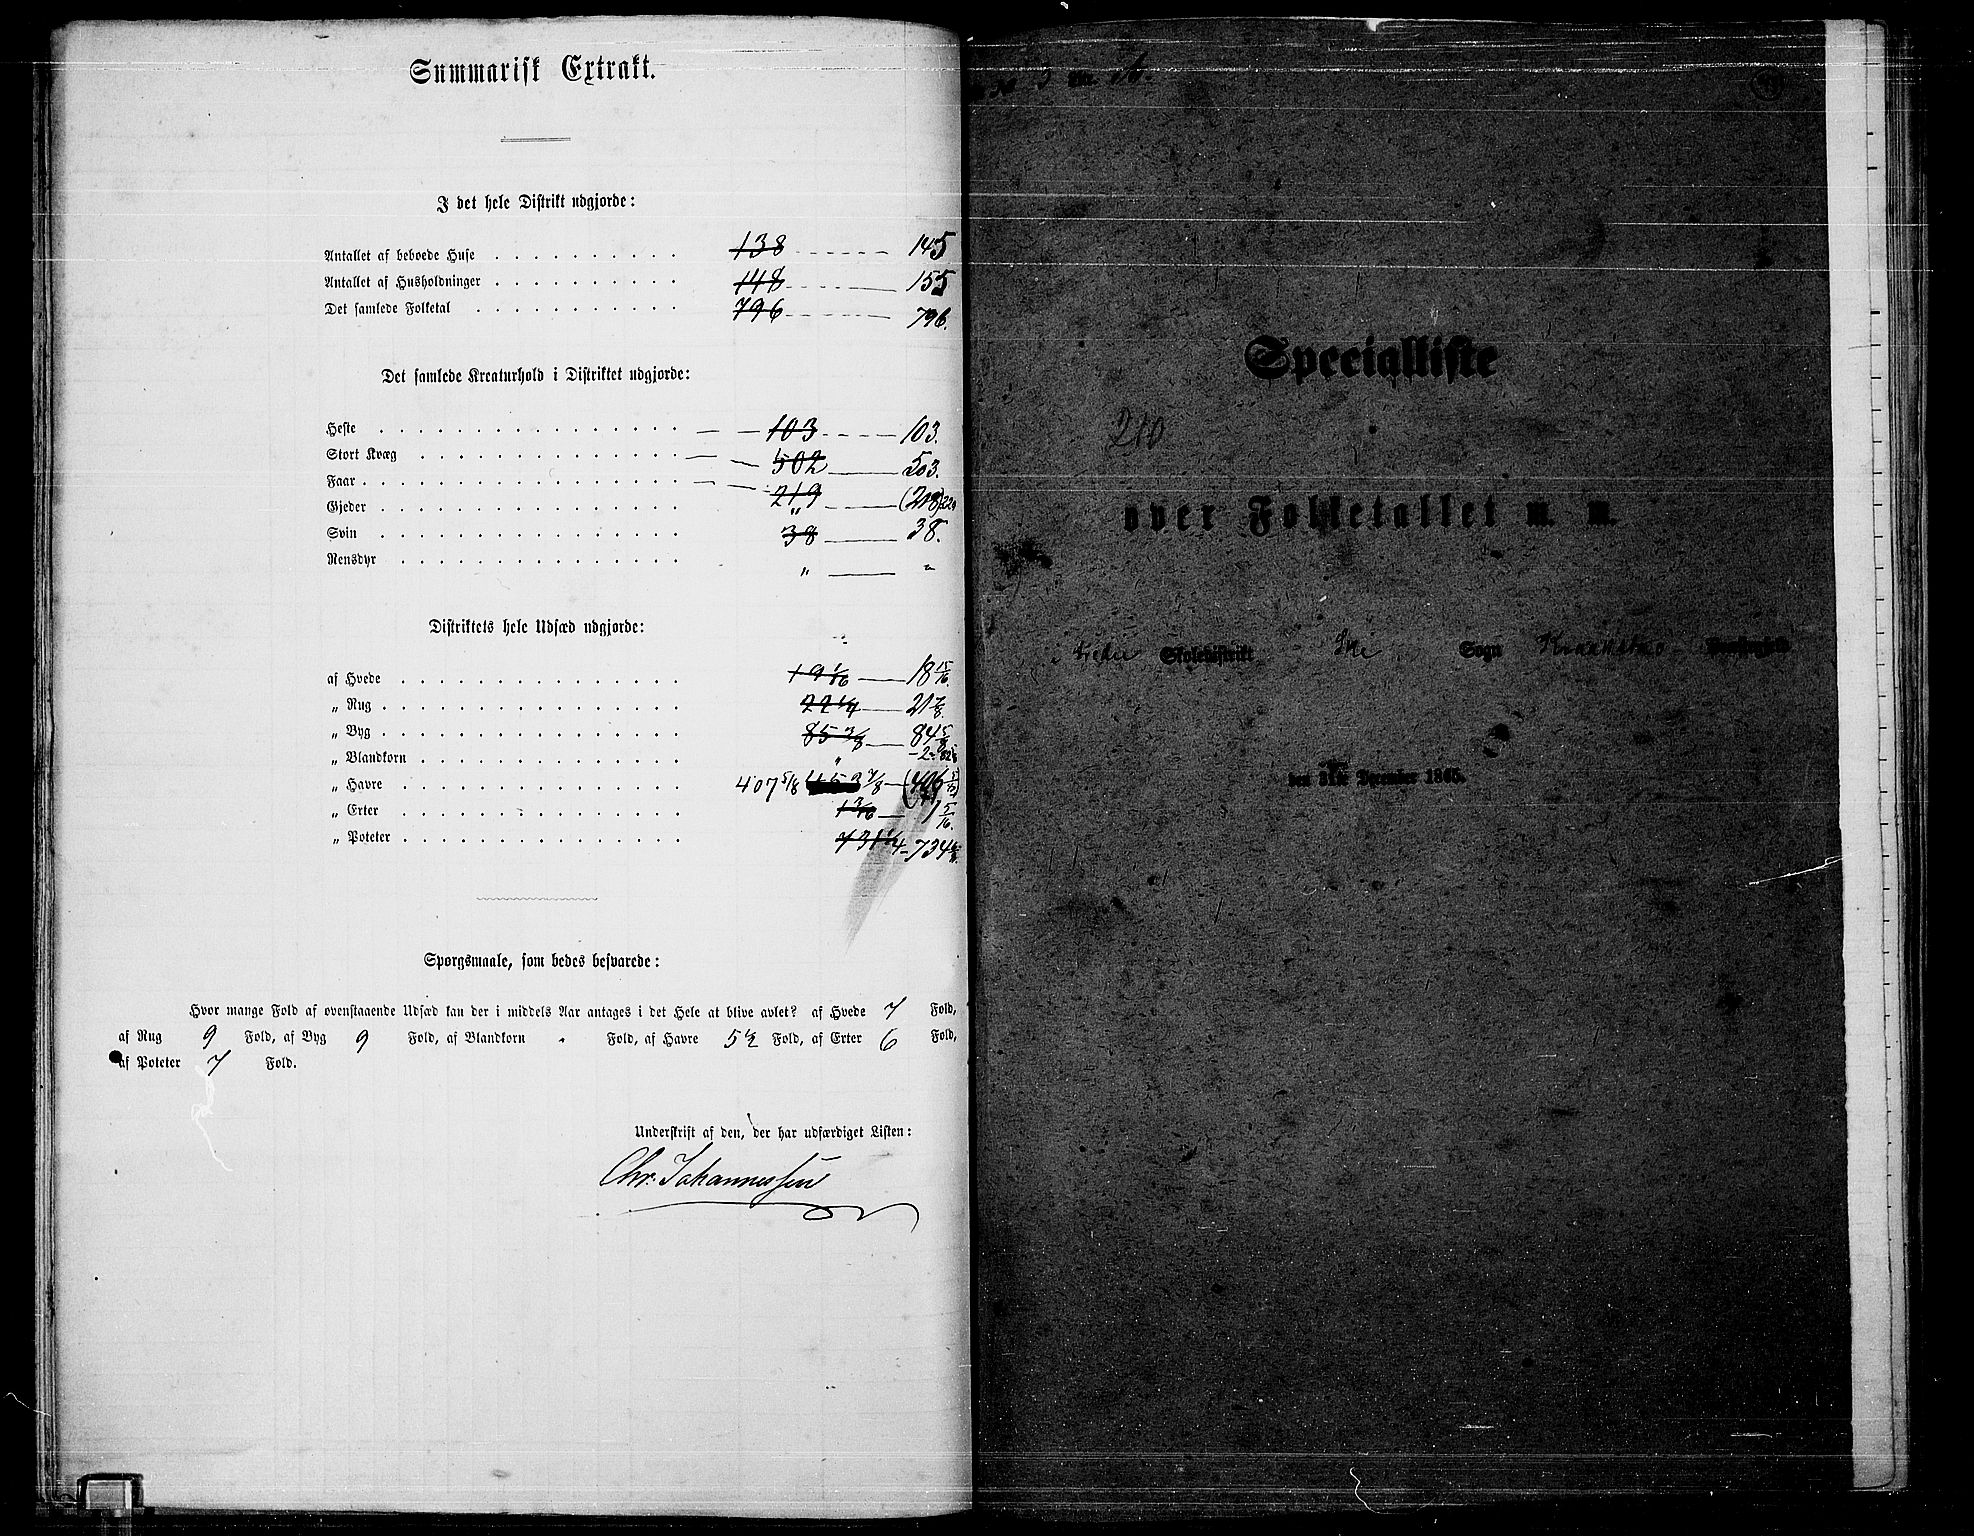 Summarisk Extrakt.
I det hele Distrikt udgjorde:
Antallet af beboede Huse 138 145
Antallet af Husholdninger 148 155
Det samlede Folketal 796 796.
Det samlede Kreaturhold i Distriktet udgjorde:
Heste 103 103.
Stort Kvæg 502 503.
Faar 219 (218)
Gjeder "
Svin 38 38.
Rensdyr " "
Distriktets hele Udsæd udgjorde:
af Hvede 19 1/16 18 15/16.
„ Rug 22 1/4 21 7/8.
„ Byg 85 3/8 84 5/8
„ Blandkorn " - 2 -
„ Havre 407 5/8
„ Erter 1 3/16 1 5/16.
„ Poteter 731 1/4 - 734
Spørgsmaale, som bedes besvarede:
Hvor mange Fold af ovenstaaende Udsæd kan der i middels Aar antages i det Hele at blive avlet? af Hvede 7 Fold,
af Rug 9 Fold, af Byg 9 Fold, af Blandkorn Fold, af Havre 5 1/2 Fold, af Erter 6 Fold,
af Poteter 7 Fold.
Underskrift af den, der har udfærdiget Listen:
Chr. Johannessen
3 A.
Specialliste
210
over Folketallet m. m.
Skoledistrikt Sogn Præstegjeld
den 31te December 1865.